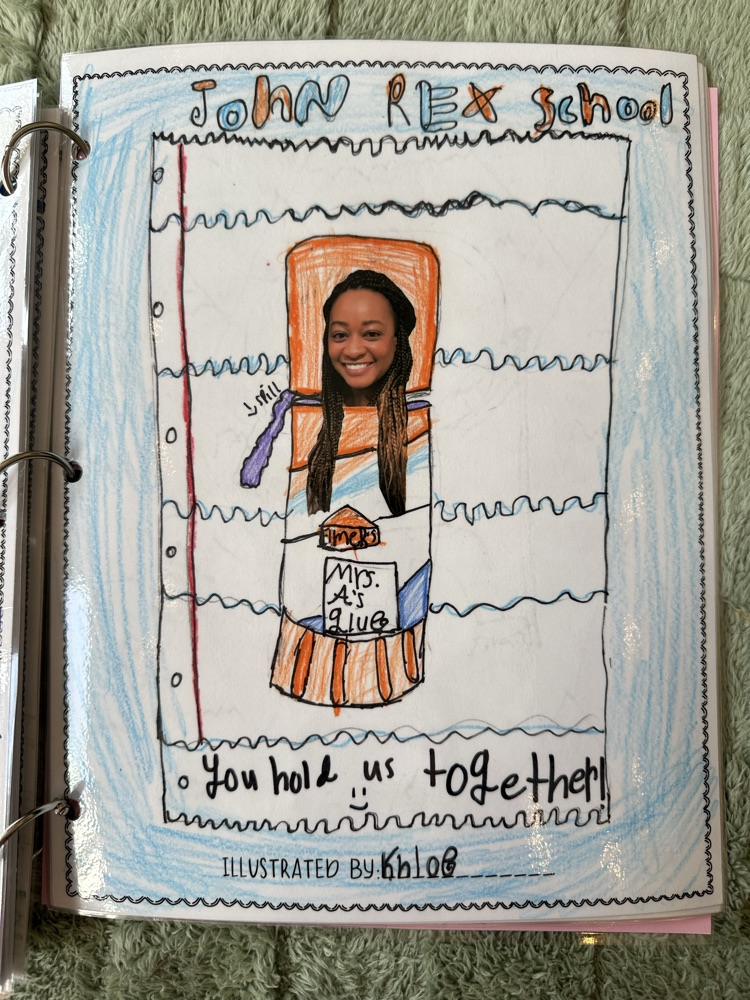 John REX School
spill
Elmer's
Mrs.
A's
glue
You hold us together!
ILLUSTRATED BY: Khloe